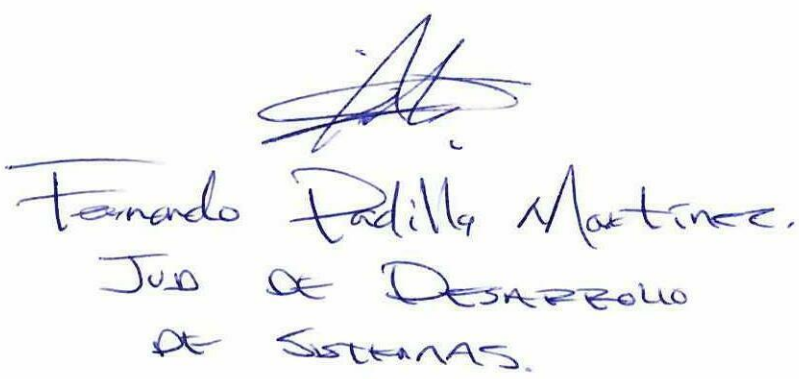 Fernando Padilla Martínez.
JUD DE DESARROLLO
DE SISTEMAS.